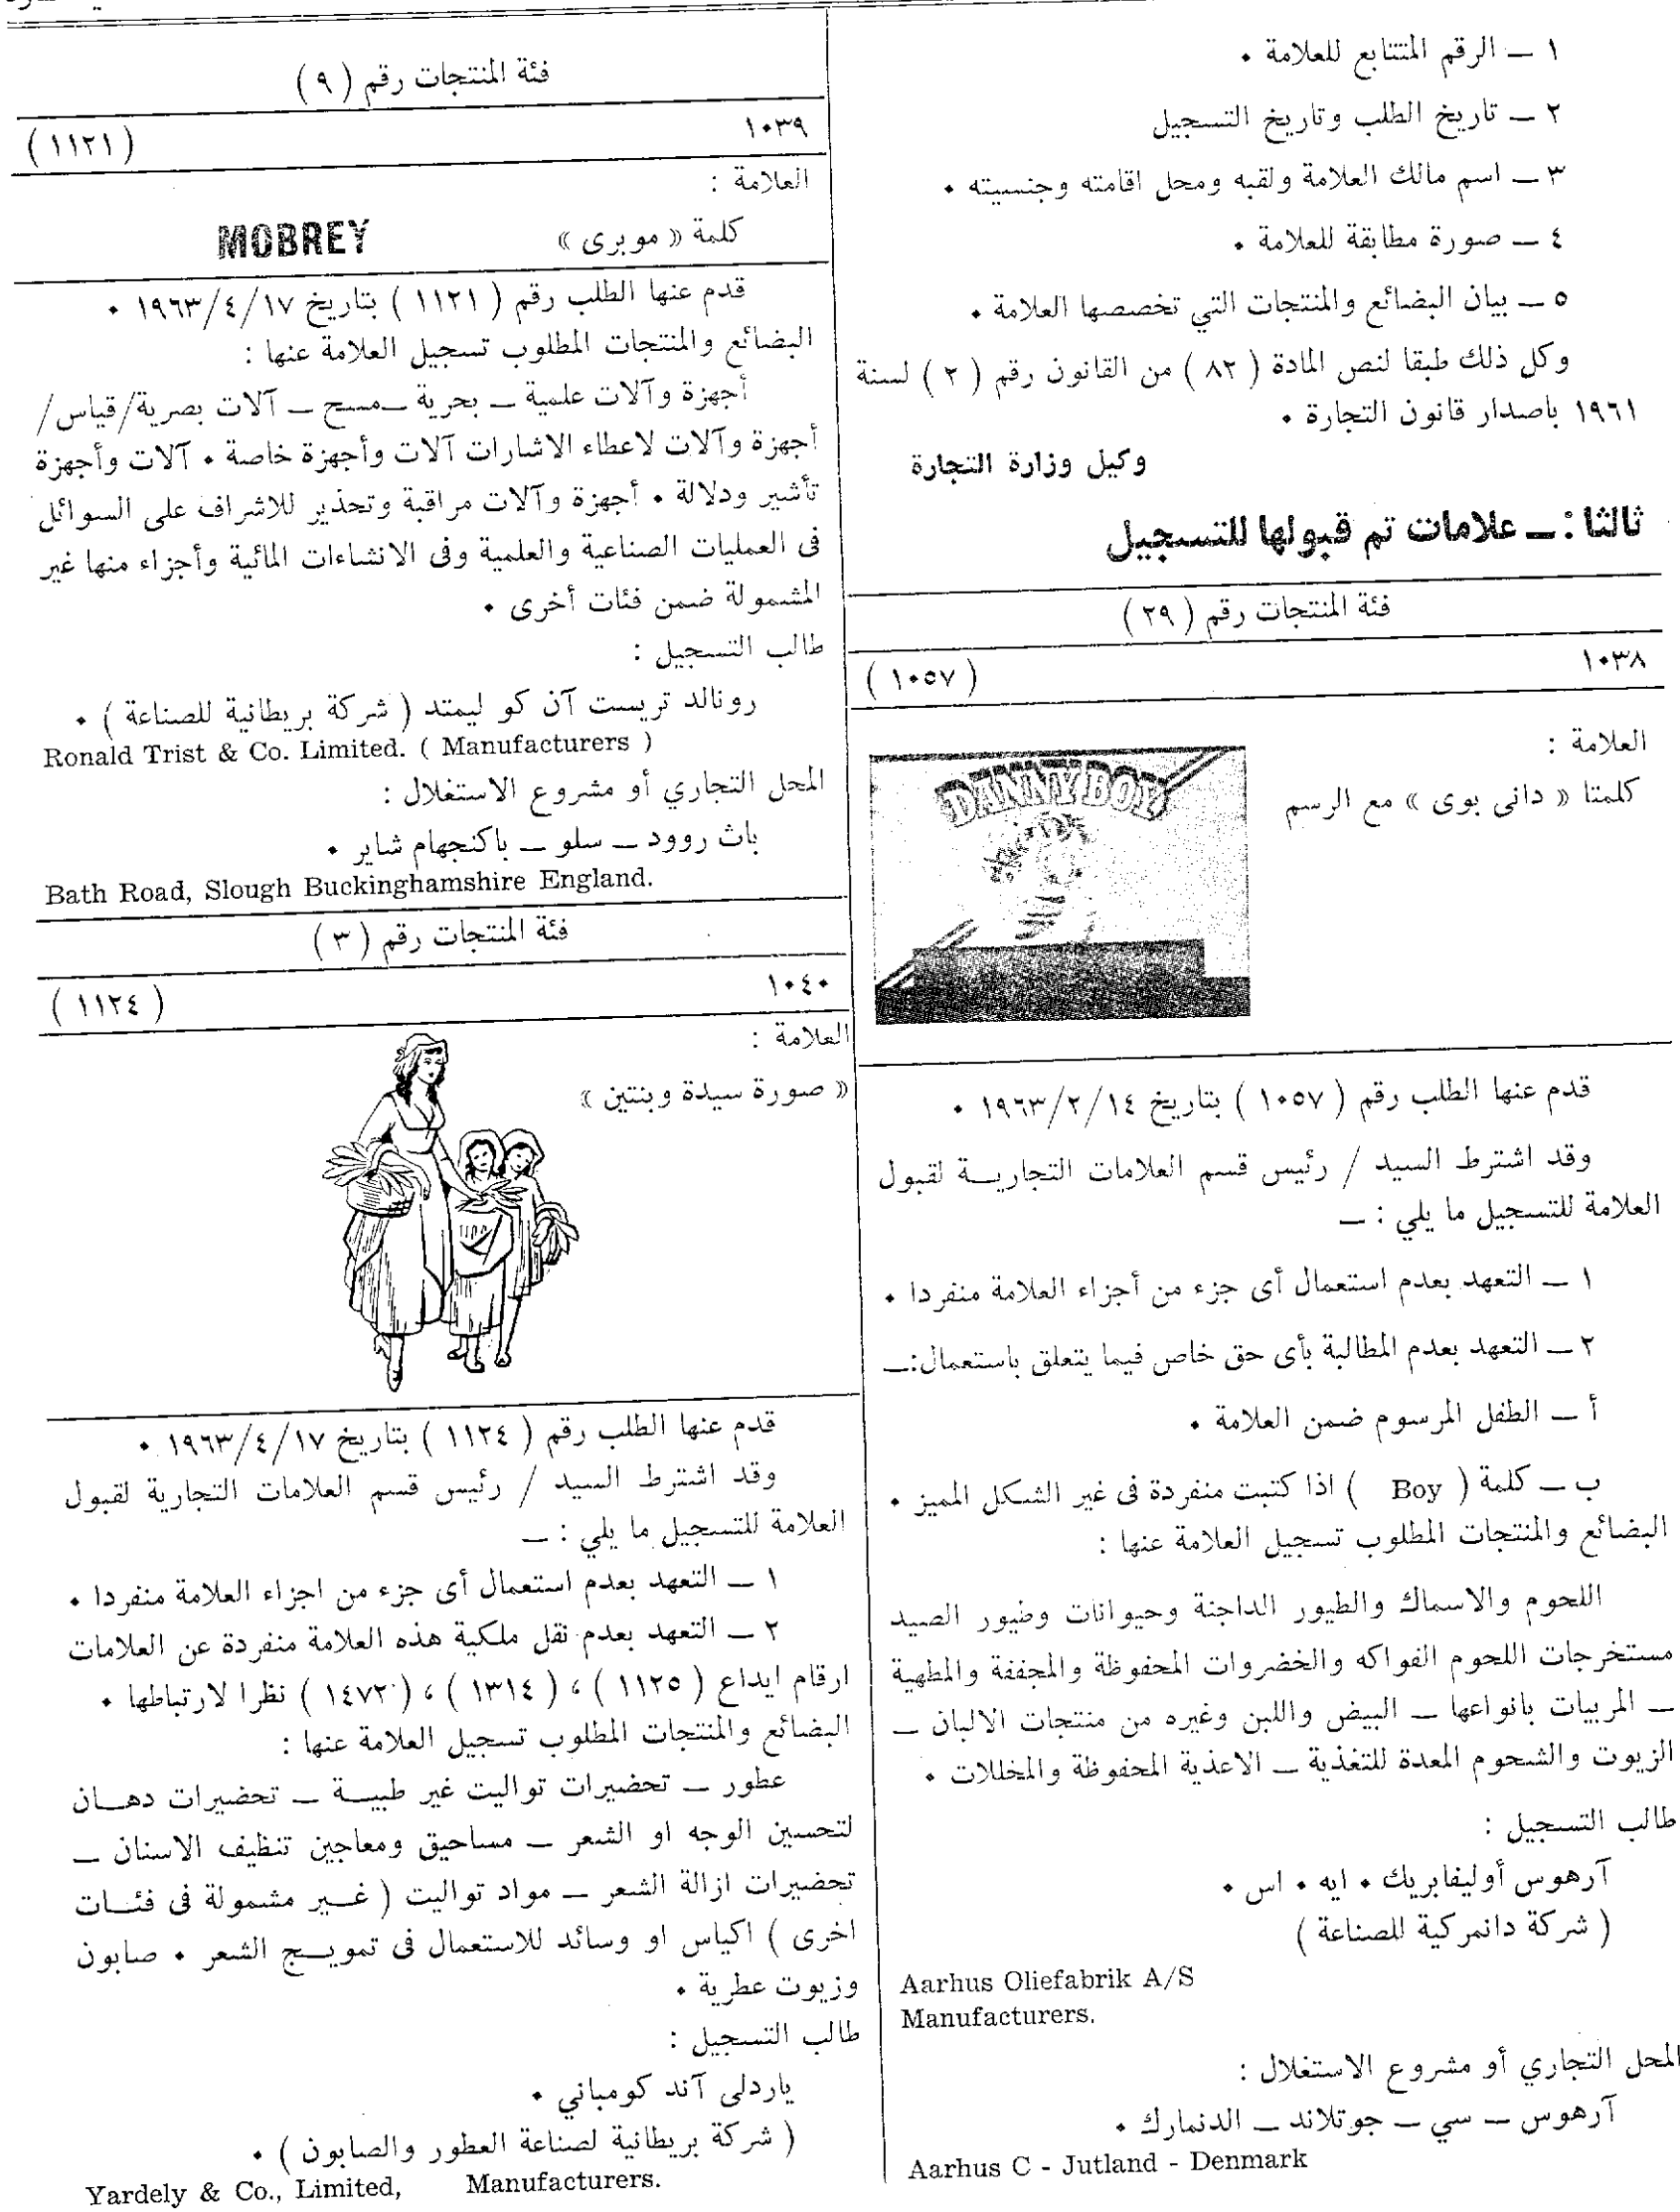 ١ — الرقم المتتابع للعلامة .
٢ — تاريخ الطلب وتاريخ التسجيل
٣ — اسم مالك العلامة ولقبه ومحل اقامته وجنسيته .
٤ — صورة مطابقة للعلامة .
٥ — بيان البضائع والمنتجات التي تخصصها العلامة .
وكل ذلك طبقا لنص المادة ( ٨٢ ) من القانون رقم ( ٢ ) لسنة
١٩٦١ باصدار قانون التجارة .
وكيل وزارة التجارة
ثالثا : — علامات تم قبولها للتسجيل
فئة المنتجات رقم ( ٢٩ )
١٠٣٨ ( ١٠٥٧ )
العلامة :
كلمتا « دانى بوى » مع الرسم
DANNY BOY
قدم عنها الطلب رقم ( ١٠٥٧ ) بتاريخ ١٩٦٣/٢/١٤ .
وقد اشترط السيد / رئيس قسم العلامات التجاريـــة لقبول
العلامة للتسجيل ما يلي : —
١ — التعهد بعدم استعمال أى جزء من أجزاء العلامة منفردا .
٢ — التعهد بعدم المطالبة بأى حق خاص فيما يتعلق باستعمال:—
أ — الطفل المرسوم ضمن العلامة .
ب — كلمة ( Boy ) اذا كتبت منفردة فى غير الشكل المميز .
البضائع والمنتجات المطلوب تسجيل العلامة عنها :
اللحوم والاسماك والطيور الداجنة وحيوانات وطيور الصيد
مستخرجات اللحوم الفواكه والخضروات المحفوظة والمجففة والمطهية
— المربيات بانواعها — البيض واللبن وغيره من منتجات الالبان —
الزيوت والشحوم المعدة للتغذية — الاغذية المحفوظة والمخللات .
طالب التسجيل :
آرهوس أوليفابريك . ايه . اس .
( شركة دانمركية للصناعة )
Aarhus Oliefabrik A/S
Manufacturers.
المحل التجاري أو مشروع الاستغلال :
آرهوس — سي — جوتلاند — الدنمارك .
Aarhus C - Jutland - Denmark
فئة المنتجات رقم ( ٩ )
١٠٣٩ ( ١١٢١ )
العلامة :
كلمة « موبرى » MOBREY
قدم عنها الطلب رقم ( ١١٢١ ) بتاريخ ١٩٦٣/٤/١٧ .
البضائع والمنتجات المطلوب تسجيل العلامة عنها :
أجهزة وآلات علمية — بحرية —مسح — آلات بصرية/قياس/
أجهزة وآلات لاعطاء الاشارات آلات وأجهزة خاصة . آلات وأجهزة
تأشير ودلالة . أجهزة وآلات مراقبة وتحذير للاشراف على السوائل
فى العمليات الصناعية والعلمية وفى الانشاءات المائية وأجزاء منها غير
المشمولة ضمن فئات أخرى .
طالب التسجيل :
رونالد تريست آن كو ليمتد ( شركة بريطانية للصناعة ) .
Ronald Trist & Co. Limited. ( Manufacturers )
المحل التجاري أو مشروع الاستغلال :
باث روود — سلو — باكنجهام شاير .
Bath Road, Slough Buckinghamshire England.
فئة المنتجات رقم ( ٣ )
١٠٤٠ ( ١١٢٤ )
العلامة :
« صورة سيدة وبنتين »
قدم عنها الطلب رقم ( ١١٢٤ ) بتاريخ ١٩٦٣/٤/١٧ .
وقد اشترط السيد / رئيس قسم العلامات التجارية لقبول
العلامة للتسجيل ما يلي : —
١ — التعهد بعدم استعمال أى جزء من اجزاء العلامة منفردا .
٢ — التعهد بعدم نقل ملكية هذه العلامة منفردة عن العلامات
ارقام ايداع ( ١١٢٥ ) ، ( ١٣١٤ ) ، ( ١٤٧٢ ) نظرا لارتباطها .
البضائع والمنتجات المطلوب تسجيل العلامة عنها :
عطور — تحضيرات تواليت غير طبيـــة — تحضيرات دهـــان
لتحسين الوجه او الشعر — مساحيق ومعاجين تنظيف الاسنان —
تحضيرات ازالة الشعر — مواد تواليت ( غـــير مشمولة فى فئـــات
اخرى ) اكياس او وسائد للاستعمال فى تمويـــج الشعر . صابون
وزيوت عطرية .
طالب التسجيل :
ياردلى آند كومباني .
( شركة بريطانية لصناعة العطور والصابون ) .
Yardely & Co., Limited, Manufacturers.